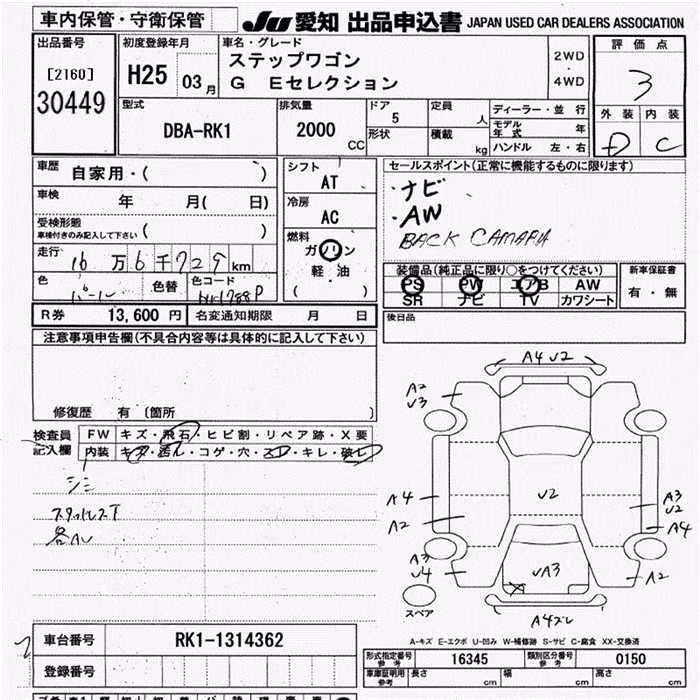 車内保管・守衛保管
JU 愛知 出品申込書 JAPAN USED CAR DEALERS ASSOCIATION
出品番号
[2160]
30449
初度登録年月
H25 03 月
車名・グレード
ステップワゴン
G Eセレクション
2WD
・
4WD
評価点
3
外装 内装
D C
型式
DBA-RK1
排気量
2000 CC
ドア
5
形状
定員
人
積載
kg
ディーラー・並行
モデル年式 年
ハンドル 左・右
車歴
自家用・( )
車検
年 月( 日)
受検形態
車検付きのみ記入して下さい ( )
走行
16万6千729km
色
パール
色替
色コード
NH788P
シフト
AT
冷房
AC
燃料
ガソリン
軽・油
( )
セールスポイント(正常に機能するものに限ります)
・ナビ
・AW
BACK CAMARA
装備品(純正品に限り○をつけてください)
PS PW エアB AW
SR ナビ TV カワシート
新車保証書
有・無
R券 13,600 円
名変通知期限 月 日
後日品
注意事項申告欄(不具合内容等は具体的に記入して下さい)
修復歴 有 〔箇所 〕
検査員
記入欄
FW キズ・飛石・ヒビ割・リペア跡・X要
内装 キズ・汚レ・コゲ・穴・スレ・キレ・破レ
シミ
スタッドレスT
各AU
A4 U2
A2
U3
A4
A2
U2
A3
U2
A4
A3
U4
UA3
A2
スペア
A4ズレ
A-キズ E-エクボ U-凹み W-補修跡 S-サビ C-腐食 XX-交換済
車台番号
RK1-1314362
登録番号
型式指定番号
参考
16345
類別区分番号
参考
0150
車庫証明用
参考
長さ cm
幅 cm
高さ cm